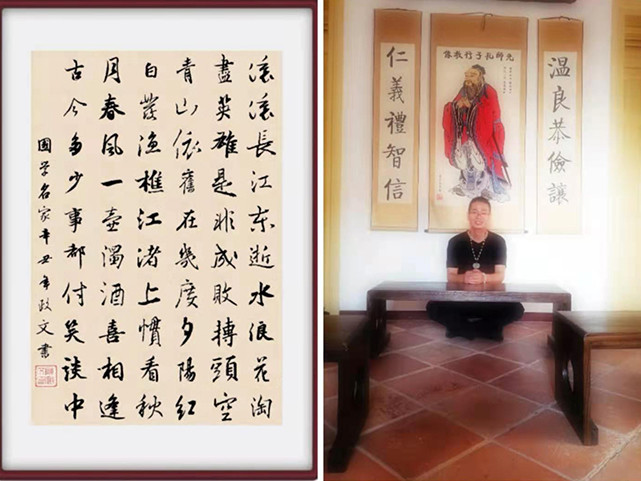 滚滚長江东逝水浪花淘
盡英雄是非成敗轉頭空
青山依舊在幾度夕陽紅
白髮渔樵江渚上慣看秋
月春風一壺濁酒喜相逢
古今多少事都付笑談中
國学名家辛丑年政文書
先師孔子行教像
温良恭儉讓
仁義禮智信